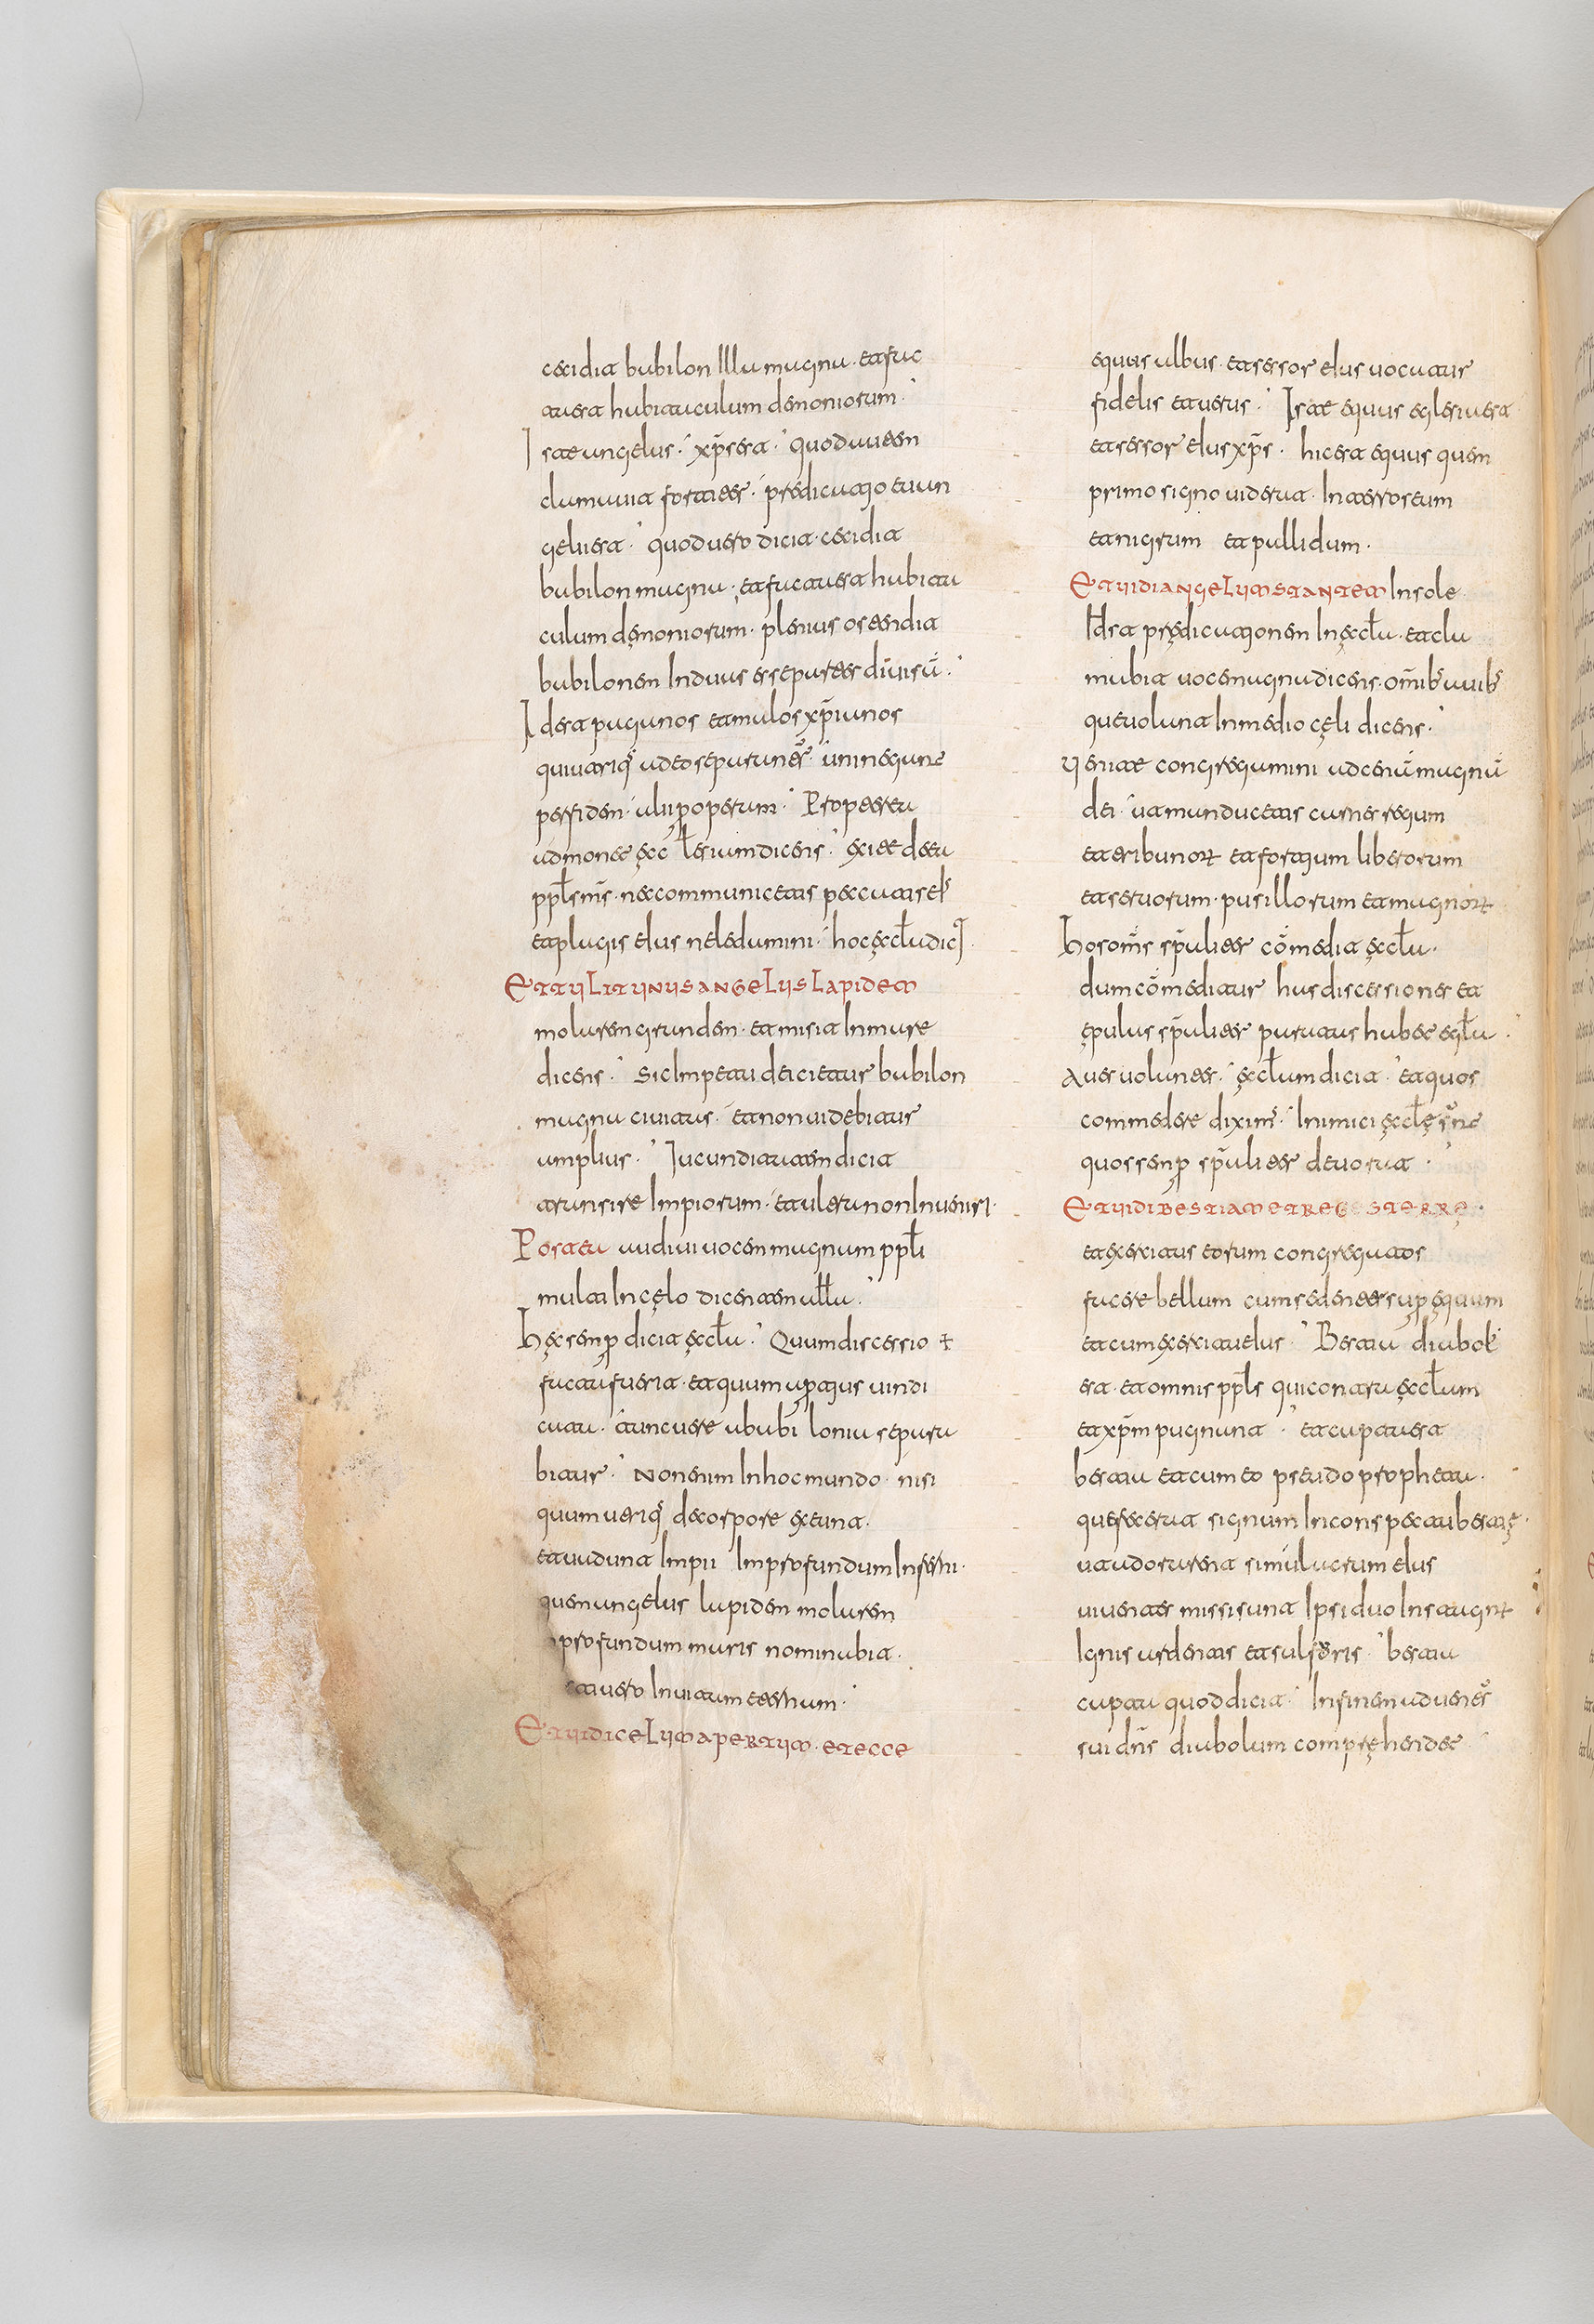 cecidit babilon illa magna · et fac
ta est habitaculum demoniorum ·
Iste angelus · xp̄s est · quod autem
clamabit fortiter · predicatio euan
gelii est · quod uero dicit · cecidit
babilon magna · et facta est habita
culum dęmoniorum · plenius ostendit
babilonem In duas esse partes diuisā ·
Id est paganos et malos xp̄ianos
qui utriq; a deo separantēs
perfidem · alii p opera · Propterea
admonet ęccłesiam dicens · exite de ea
ppłs ms̄ · ne communicetis peccatis ei;
et plagis eius ne ledamini · hoc ęccła dicit
ET TULIT UNUS ANGELUS LAPIDEM
molarem grandem · et misit In mare
dicens · Sic Impetu deicietur babilon
magna ciuitas · et non uidebitur
amplius · Iucunditatem dicit
transire Impiorum · et ultra non Inueniri ·
Postea audiui uocem magnam ppłi
multi In cęlo dicentem ałła ·
hęc semp dicit ęccła · Quum discessio
facta fuerit · et quum apertius uindi
cata · tunc uere a babi lonia separa
bitur · Non enim In hoc mundo · nisi
quum utriq; de corpore exeunt ·
et uadunt Impii In profundum Inferni ·
quem angelus lapidem molarem
profundum maris nominabit ·
uero In uitam eternam ·
ET UIDI CELUM APERTUM · ET ECCE
equus albus · et sessor eius uocatur
fidelis et uerus · Iste equus eglesia est
et sessor eius xp̄s · hic est equus quem
primo signo uiderat · In terroseum
et nigrum et pallidum ·
ET UIDI ANGELUM STANTEM In sole
Id est prędicationem In ęccła · et cla
mabit uoce magna dicens · om̄ib; auib;
que uolant In medio cęli dicens ·
Uenite congregamini ad cenā magnā
dei · ut manducetis carnes regum
et tribunoꝝ et fortium liberorum
et seruorum · pusillorum et magnoꝝ
hos om̄s sp̄aliter cōmedit ęccła ·
dum cōmeditur has discessiones et
ępulas sp̄aliter paratas habet egła ·
Aues uolantes · ęccłam dicit · et quos
commedere diximˢ · Inimici ęccłę sūt
quos semp sp̄aliter deuorat ·
ET UIDI BESTIAM ET REGES TERRĘ ·
et exercitus eorum congregatos
facere bellum cum sedente sup equum
et cum exercitu eius · Bestia diabol;
est · et omnis ppłs qui contra ęccłam
et xp̄m pugnant · et capta est
bestia et cum eo pseudo propheta ·
que fecerat signum In conspectu bestię ·
ut adorarent simulacrum eius
uiuentes missi sunt Ipsi duo In stagnū
Ignis ardentis et sulforis · bestia
capta quod dicit · In finem aduentūs
sui dn̄s diabolum comprehendet